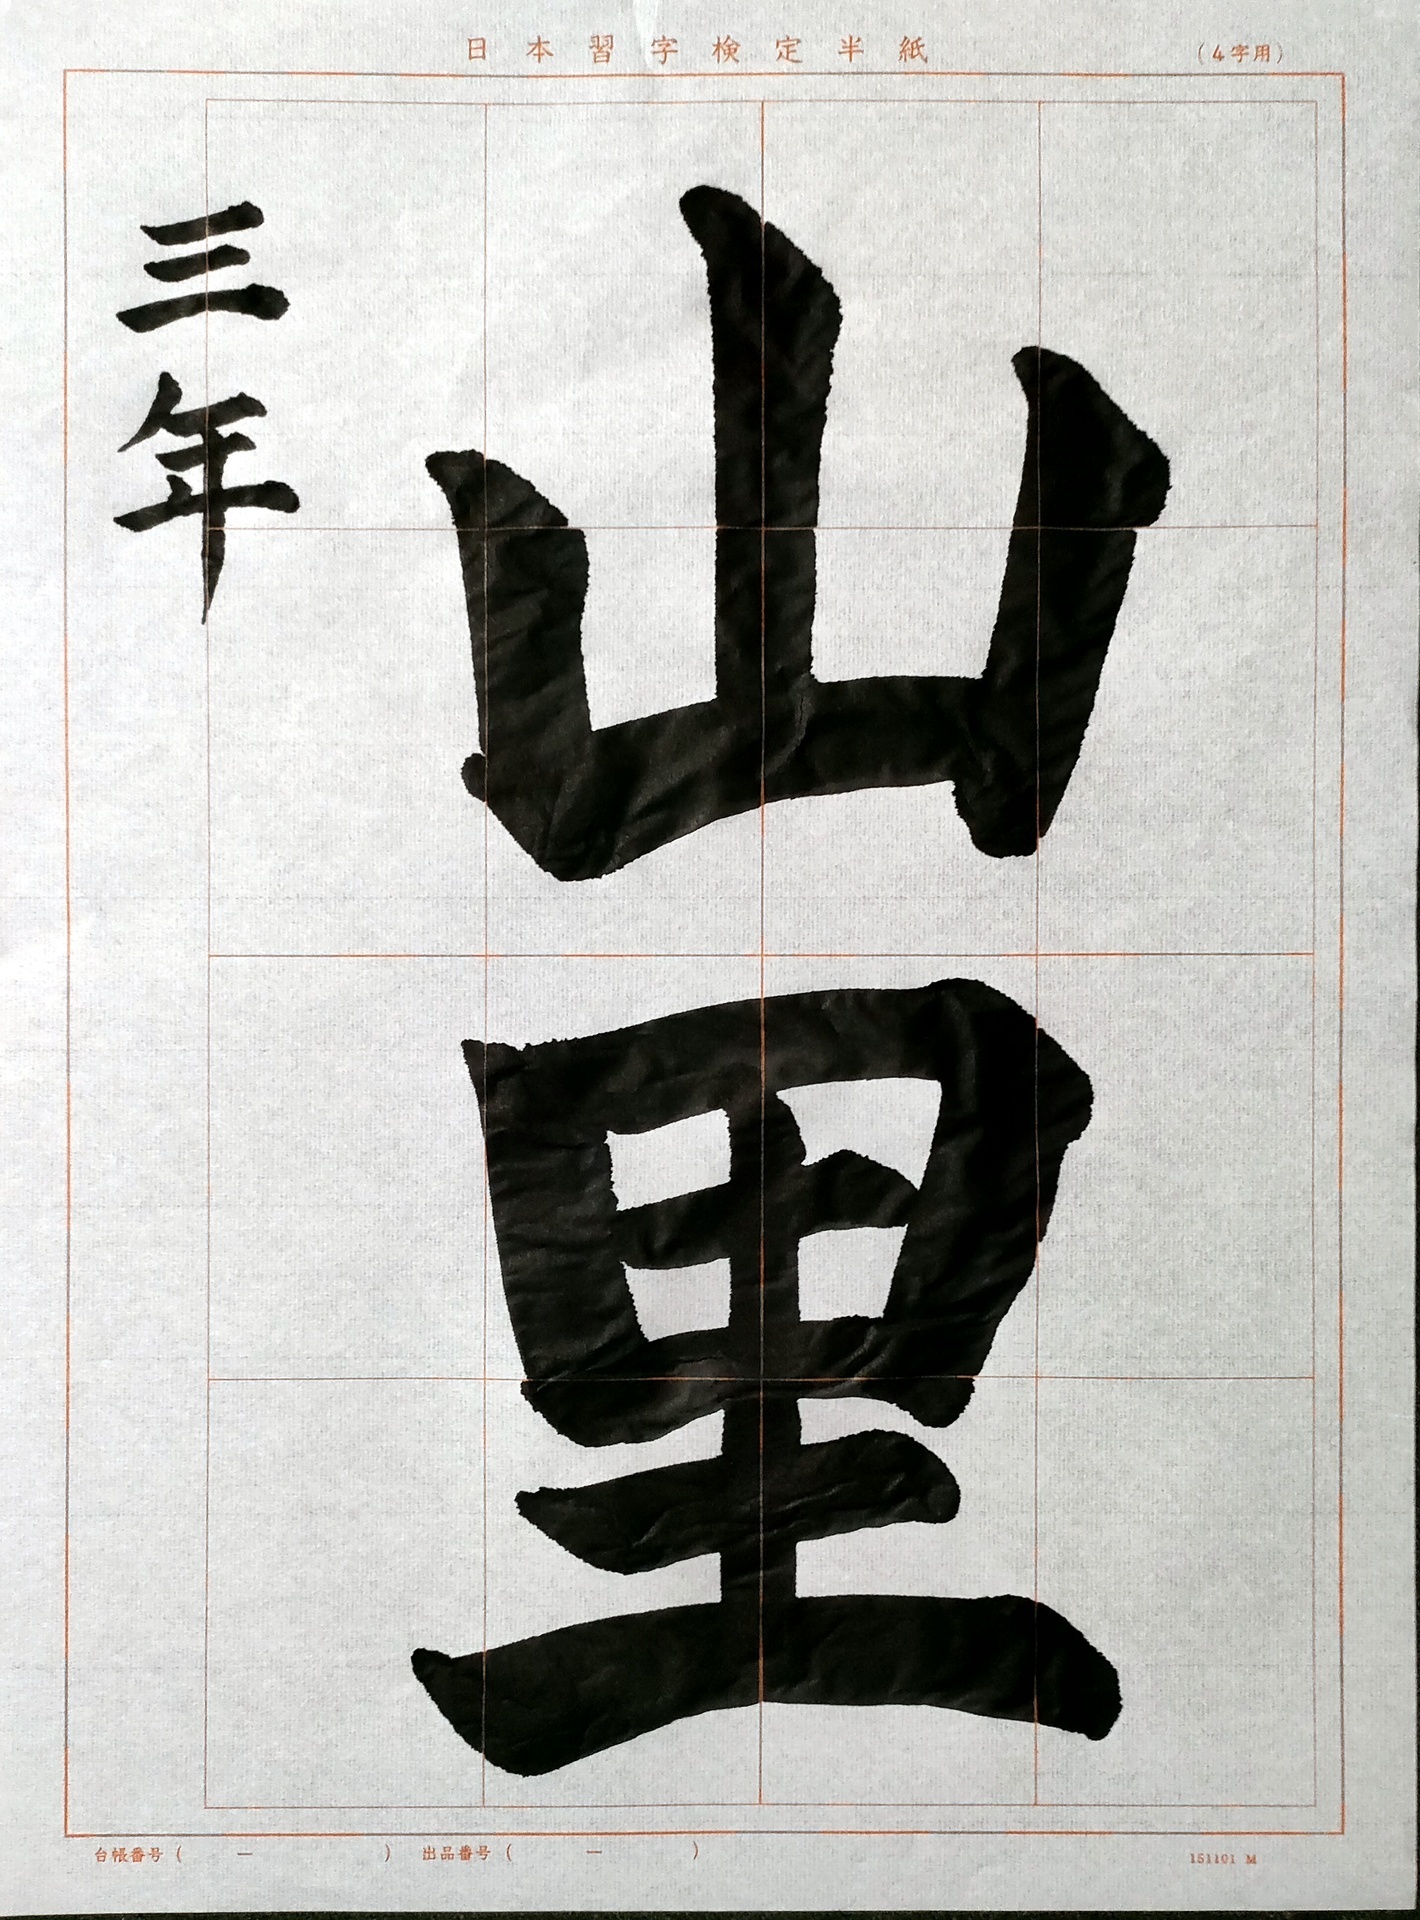 日本習字検定半紙
(4字用)
山里
三年
台帳番号( ー ) 出品番号( ー )
151101 M